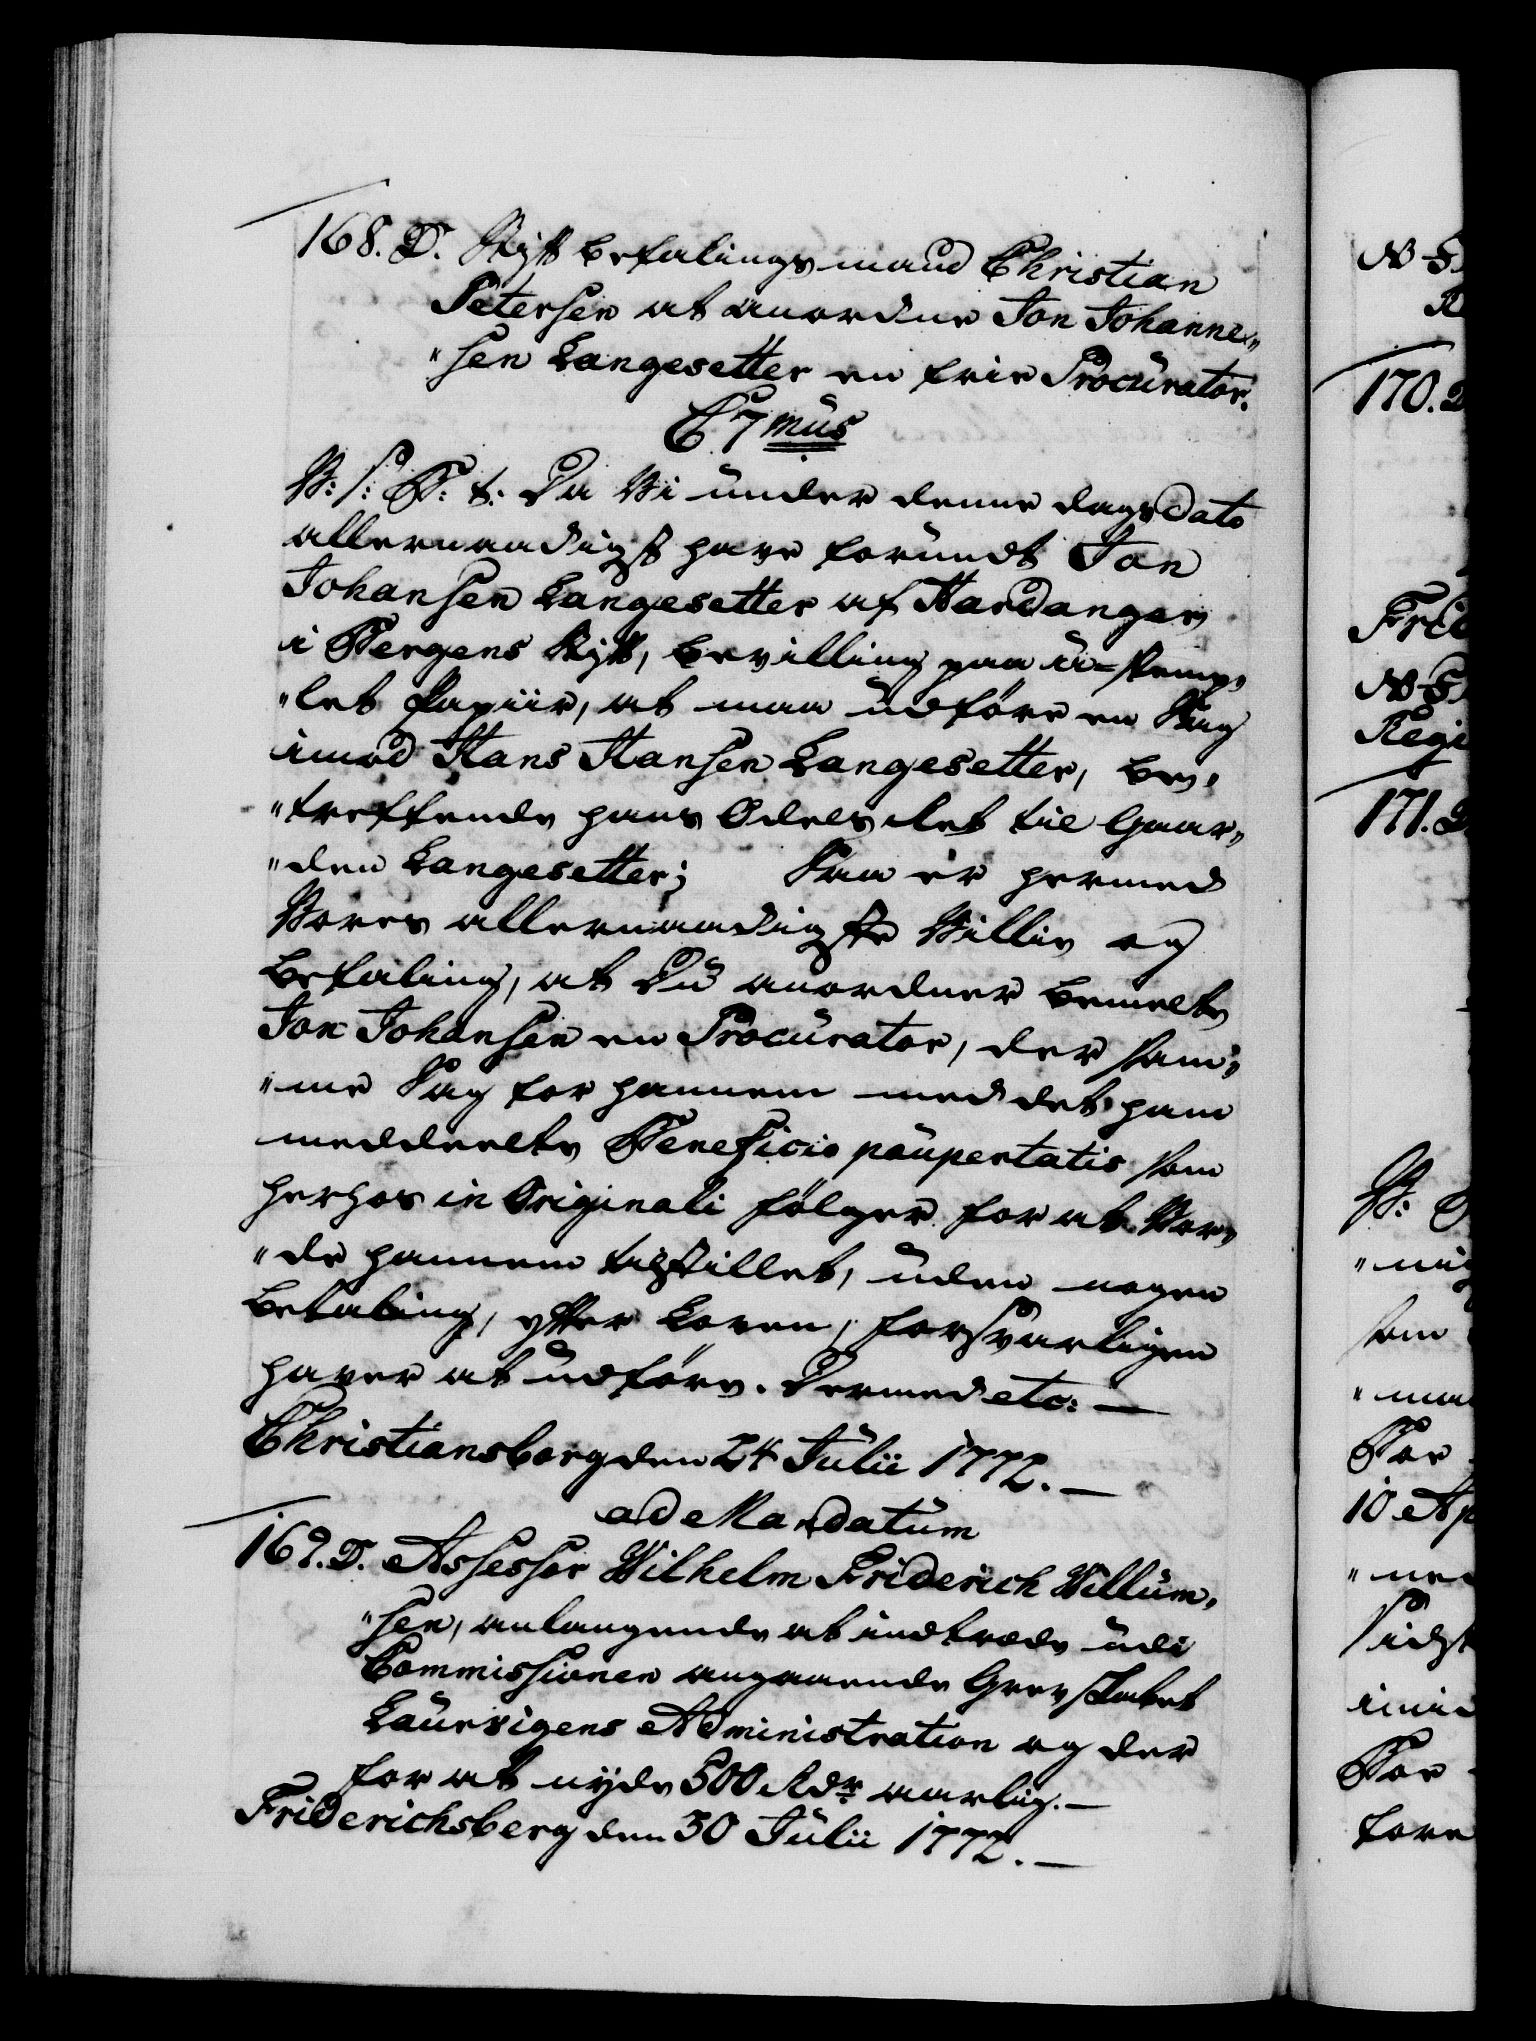 168. D. Stift Befalingsmand Christian
Petersen at anordne Jon Johanne„
„sen Langesetter en frie Procurator.
C. 7mus
V: S: G: t: Da Vi under denne dags Dato
allernaadigst have forundt Jon
Johansen Langesetter af Hardanger
i Bergens Stift, bevilling paa u-stemp„
„let Papiir, at maa udføre en Sag
imod Hans Hansen Langesetter, be„
„treffende hans Odels Ret til Gaar„
„den Langesetter; Saa er hermed
Vores allernaadigste Villie og
Befaling, at Du anordner bemelte
Jon Johansen en Procurator, der sam„
„me Sag for hannem med det ham
meddeelte Beneficio paupertatis som
herhos in Originali følger for at Vor„
„de hannem tilstillet, uden nogen
Betaling, efter Loven, forsvarligen
haver at udføre. Dermed etc: —
Christiansborg den 24 Julii 1772. —
ad Mandatum
169. D. Assessor Wilhelm Friderich Willum„
„sen, anlangende at indtræde udi
Commissionen angaaende Grevskabet
Laurvigens Administration og der
for at nyde 500 Rdr aarlig. —
Friderichsberg den 30 Julii 1772. —
170. D
171. D